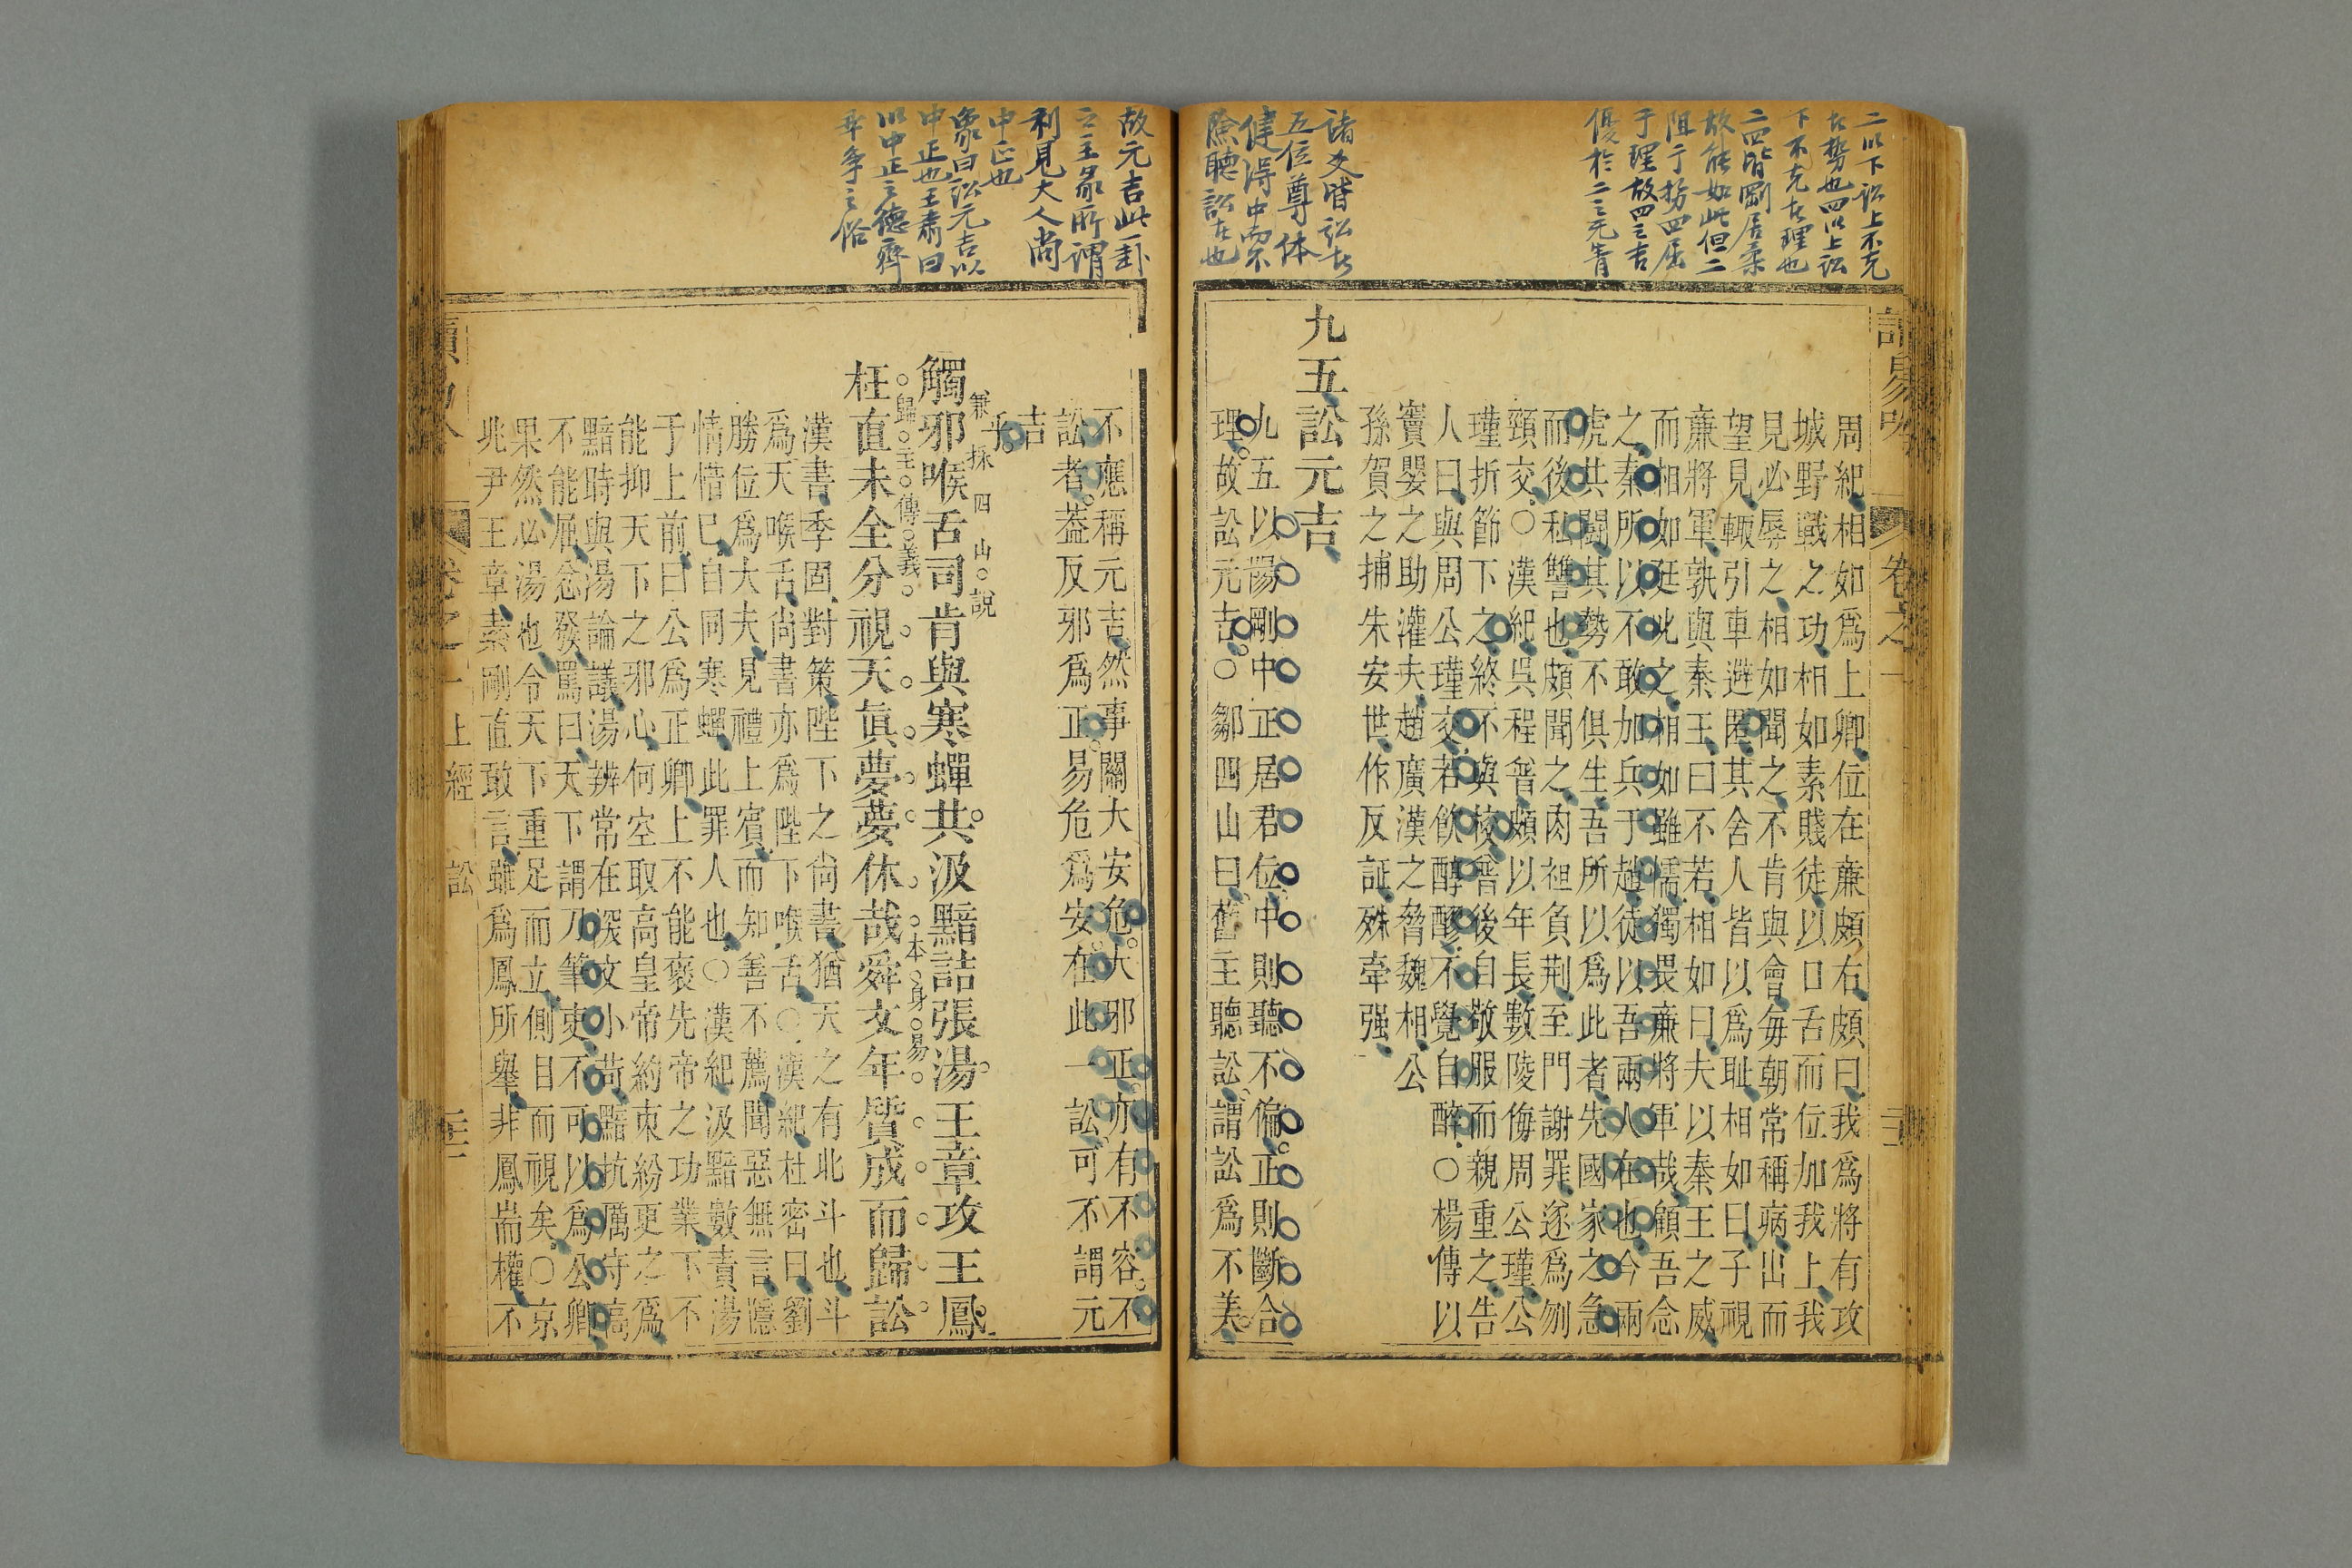 二以下訟上不克
者勢也四以上訟
下不克者理也
二四皆剛居柔
故能如此但二
阻于勢四屈
于理故四之吉
優於二之无眚
諸爻皆訟者
五位尊体
健得中而不
險聽訟者也
卷之一
周紀相如爲上卿位在廉頗右頗曰我爲將有攻
城野戰之功相如素賤徒以口舌而位加我上我
見必辱之相如聞之不肯與會每朝常稱病出而
望見輒引車避匿其舍人皆以爲耻相如曰子視
廉將軍孰與秦王曰不若相如曰夫以秦王之威
而相如廷叱之相如雖懦獨畏廉將軍哉顧吾念
之秦所以不敢加兵于趙徒以吾兩人在也今兩
虎共鬪其勢不俱生吾所以爲此者先國家之急
而後私讐也頗聞之肉袒負荆至門謝罪遂爲刎
頸交○漢紀吳程普頗以年長數陵侮周公瑾公
瑾折節下之終不與校普後自敬服而親重之告
人曰與周公瑾交若飲醇醪不覺自醉○楊傳以
竇嬰之助灌夫趙廣漢之脅魏相公
孫賀之捕朱安世作反証殊牽强
九五訟元吉
九五以陽剛中正居君位中則聽不偏正則斷合
理故訟元吉○鄒四山曰舊主聽訟謂訟爲不美
故元吉此一卦
之主彖所謂
利見大人尚
中正也
象曰訟元吉以
中正也王肅曰
以中正之德齊
乖爭之俗
不應稱元吉然事關大安危大邪正亦有不容不
訟者葢反邪爲正易危爲安在此一訟可不謂元
吉
乎
兼採四山○說
觸邪喉舌司肯與寒蟬共汲黯詰張湯王章攻王鳳
○歸○主○傳○義○
枉直未全分視天眞夢夢休哉舜文年質成而歸訟
○本○身○易○
漢書季固對策陛下之有尚書猶天之有北斗也斗
爲天喉舌尚書亦爲陛下喉舌○漢紀杜密曰劉
勝位爲大夫見禮上賓而知善不薦聞惡無言隱
情惜已自同寒蟬此罪人也○漢紀汲黯數責湯
于上前曰公爲正卿上不能褒先帝之功業下不
能抑天下之邪心何空取高皇帝約束紛更之爲
黯時與湯論議湯辨常在深文小苛黯抗厲守高
不能屈忿發罵曰天下謂刀筆吏不可以爲公卿
果然必湯也令天下重足而立側目而視矣○京
兆尹王章素剛直敢言雖爲鳳所舉非鳳耑權不
卷之一上經 訟